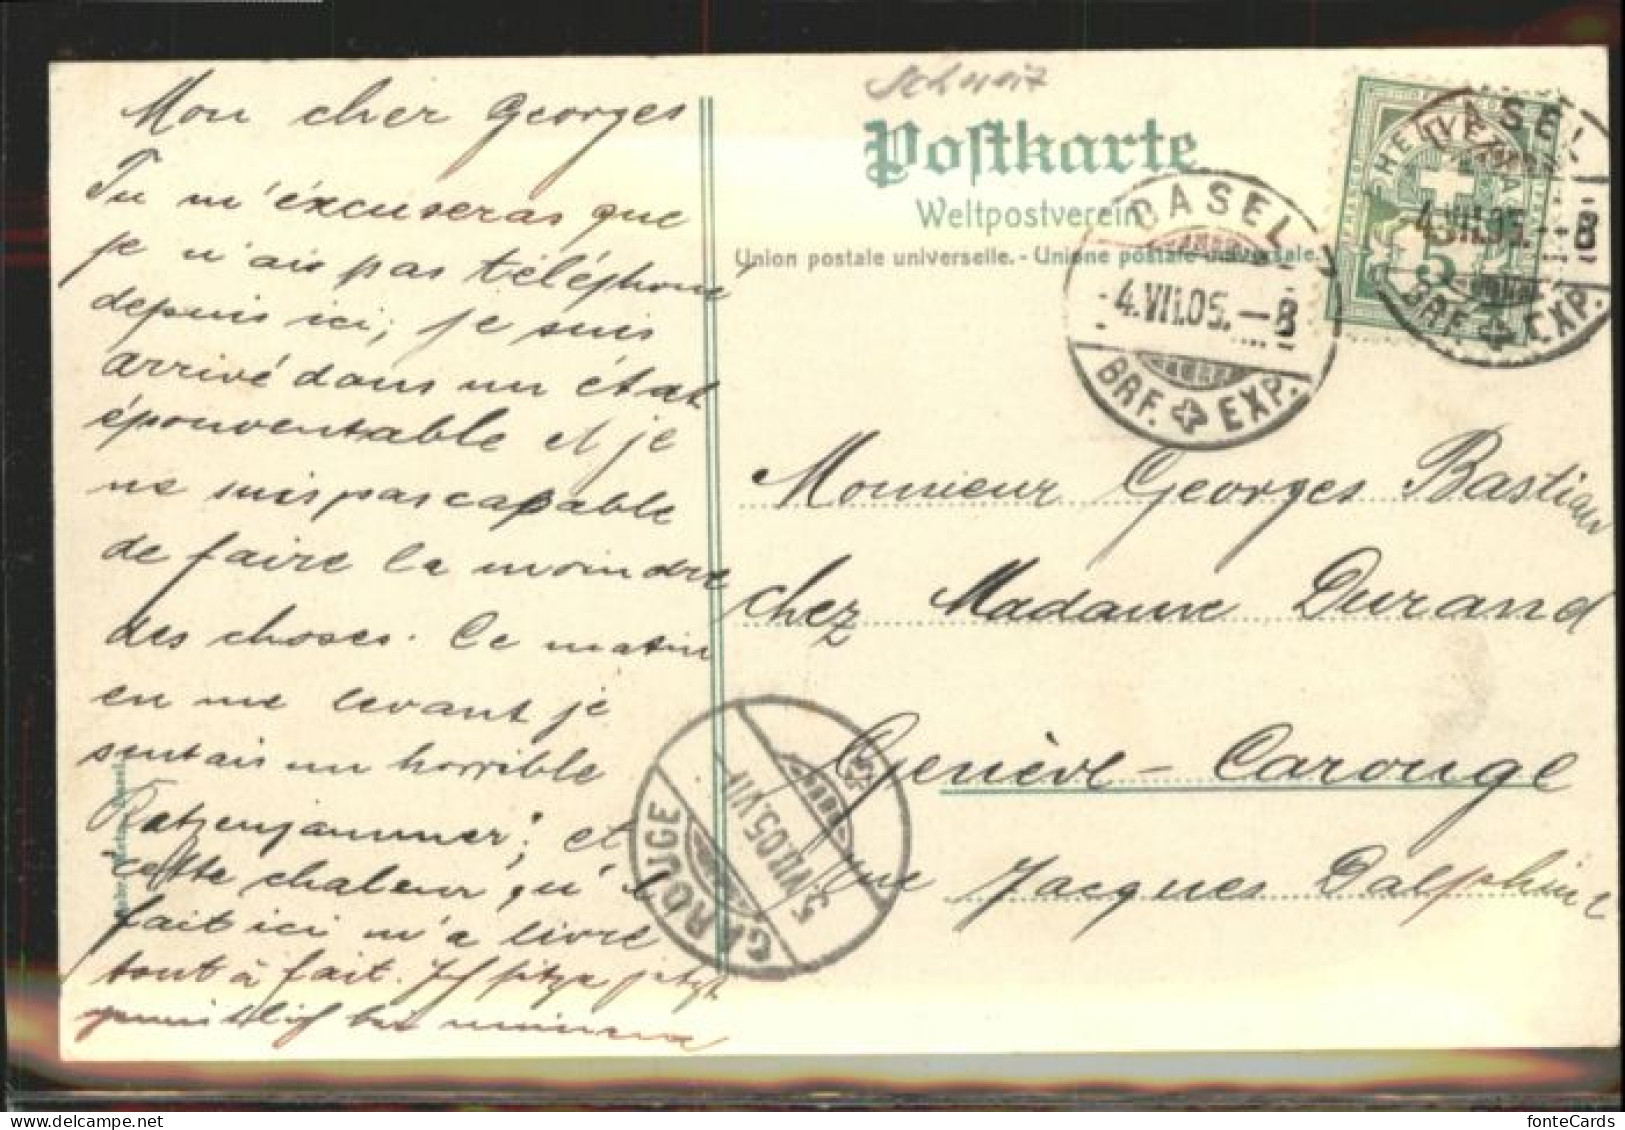 Mon cher Georges
Tu m'éxcuseras que
je n'ais pas téléphoné
depuis ici; je suis
arrivé dans un état
épouventable et je
ne suis pas capable
de faire la moindre
des choses. Ce matin
en me levant je
sentais un horrible
Katzenjammer; et
cette chaleur qu'il
fait ici m'a livré
tout à fait. Ich sitze jetzt
gemütlich bei
Schweiz
Postkarte
Weltpostverein
Union postale universelle. - Unione postale universale.
BASEL
4.VII.05.-8
BRF. EXP.
HELVETIA
5
BASEL
4.VII.05.-8
BRF. EXP.
Monsieur Georges Bastian
chez Madame Durand
Genève - Carouge
rue Jacques Dalphin
CAROUGE
5.VII.05.VII
fonteCards